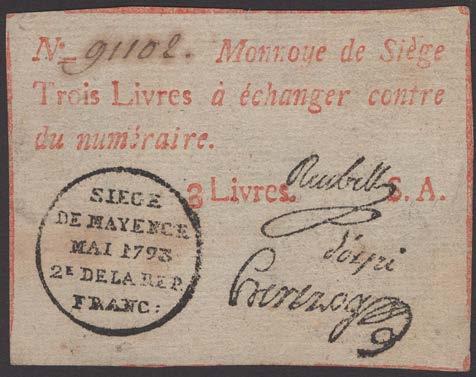 No. 91102. Monnoye de Siège
Trois Livres à échanger contre
du numéraire.
3 Livres. S. A.
Reubell
SIEGE
DE MAYENCE
MAI 1793
2E DE LA REP.
FRANC: